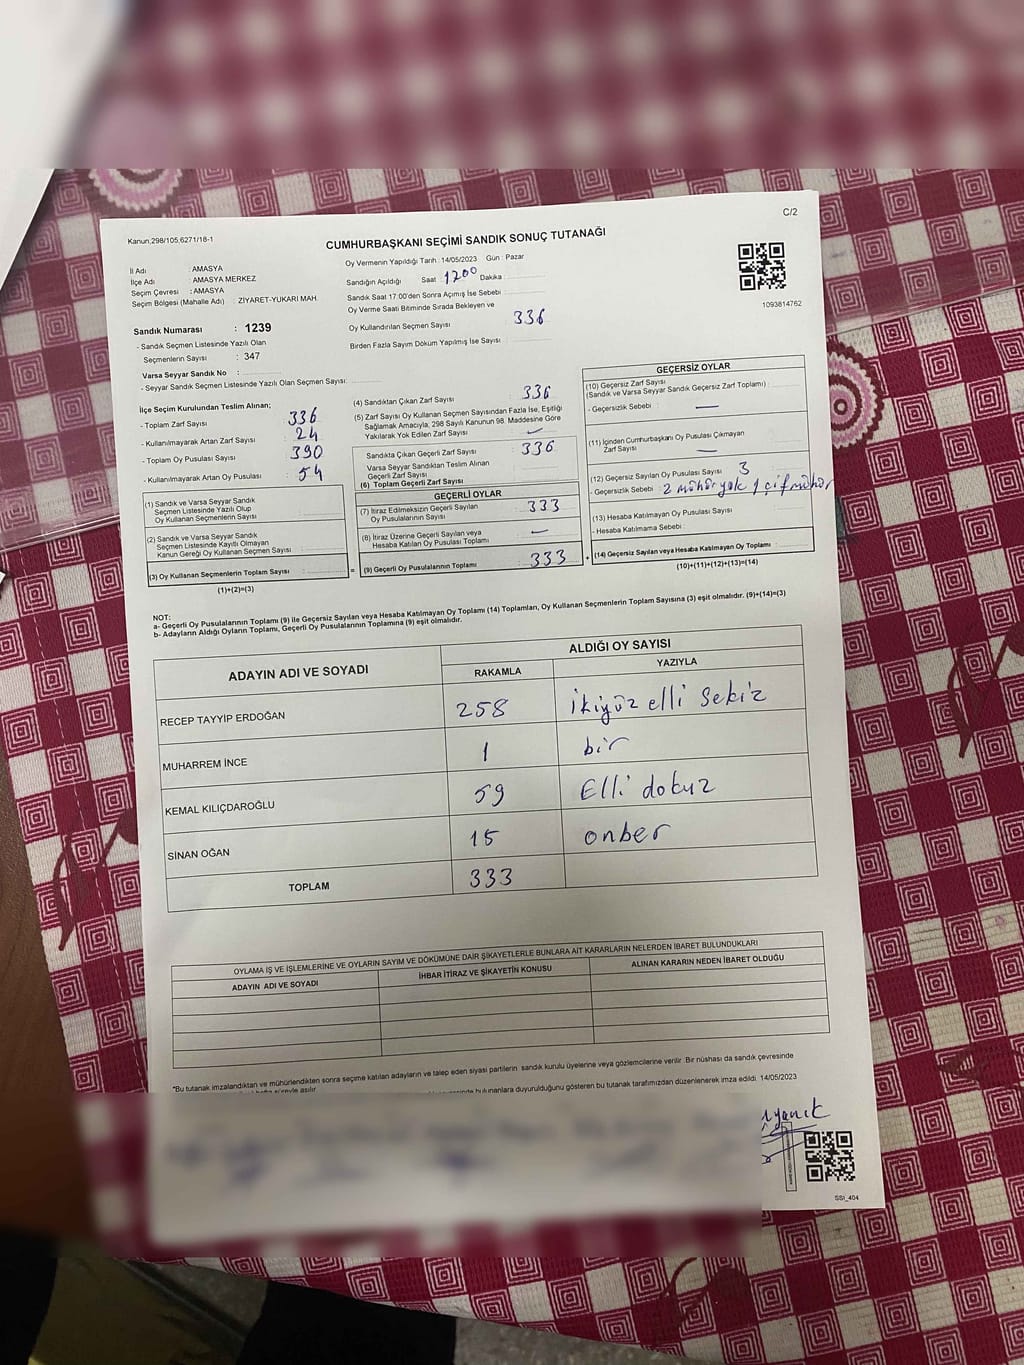 C/2
Kanun,298/105,6271/18-1
CUMHURBAŞKANI SEÇİMİ SANDIK SONUÇ TUTANAĞI
İl Adı : AMASYA
İlçe Adı : AMASYA MERKEZ
Seçim Çevresi : AMASYA
Seçim Bölgesi (Mahalle Adı) : ZİYARET-YUKARI MAH.
Oy Vermenin Yapıldığı Tarih : 14/05/2023 Gün : Pazar
Sandığın Açıldığı Saat 1700 Dakika :
Sandık Saat 17.00'den Sonra Açımış İse Sebebi :
Oy Verme Saati Bitiminde Sırada Bekleyen ve
Oy Kullandırılan Seçmen Sayısı : 336
Birden Fazla Sayım Döküm Yapılmış İse Sayısı :
1093814762
Sandık Numarası : 1239
- Sandık Seçmen Listesinde Yazılı Olan
Seçmenlerin Sayısı : 347
Varsa Seyyar Sandık No :
- Seyyar Sandık Seçmen Listesinde Yazılı Olan Seçmen Sayısı:
İlçe Seçim Kurulundan Teslim Alınan;
- Toplam Zarf Sayısı : 336
- Kullanılmayarak Artan Zarf Sayısı : 24
- Toplam Oy Pusulası Sayısı : 390
- Kullanılmayarak Artan Oy Pusulası : 54
(1) Sandık ve Varsa Seyyar Sandık
Seçmen Listesinde Yazılı Olup
Oy Kullanan Seçmenlerin Sayısı :
(2) Sandık ve Varsa Seyyar Sandık
Seçmen Listesinde Kayıtlı Olmayan
Kanun Gereği Oy Kullanan Seçmen Sayısı :
(3) Oy Kullanan Seçmenlerin Toplam Sayısı :
(1)+(2)=(3)
(4) Sandıktan Çıkan Zarf Sayısı : 336
(5) Zarf Sayısı Oy Kullanan Seçmen Sayısından Fazla İse, Eşitliği
Sağlamak Amacıyla, 298 Sayılı Kanunun 98. Maddesine Göre
Yakılarak Yok Edilen Zarf Sayısı : —
Sandıkta Çıkan Geçerli Zarf Sayısı : 336
Varsa Seyyar Sandıktan Teslim Alınan
Geçerli Zarf Sayısı :
(6) Toplam Geçerli Zarf Sayısı :
GEÇERLİ OYLAR
(7) İtiraz Edilmeksizin Geçerli Sayılan
Oy Pusulalarının Sayısı : 333
(8) İtiraz Üzerine Geçerli Sayılan veya
Hesaba Katılan Oy Pusulası Toplamı : —
= (9) Geçerli Oy Pusulalarının Toplamı : 333
GEÇERSİZ OYLAR
(10) Geçersiz Zarf Sayısı
(Sandık ve Varsa Seyyar Sandık Geçersiz Zarf Toplamı) :
- Geçersizlik Sebebi : —
(11) İçinden Cumhurbaşkanı Oy Pusulası Çıkmayan
Zarf Sayısı : —
(12) Geçersiz Sayılan Oy Pusulası Sayısı : 3
- Geçersizlik Sebebi : 2 mühür yok 1 çif mühür
(13) Hesaba Katılmayan Oy Pusulası Sayısı :
- Hesaba Katılmama Sebebi :
+ (14) Geçersiz Sayılan veya Hesaba Katılmayan Oy Toplamı :
(10)+(11)+(12)+(13)=(14)
NOT:
a- Geçerli Oy Pusulalarının Toplamı (9) ile Geçersiz Sayılan veya Hesaba Katılmayan Oy Toplamı (14) Toplamları, Oy Kullanan Seçmenlerin Toplam Sayısına (3) eşit olmalıdır. (9)+(14)=(3)
b- Adayların Aldığı Oyların Toplamı, Geçerli Oy Pusulalarının Toplamına (9) eşit olmalıdır.
ADAYIN ADI VE SOYADI ALDIĞI OY SAYISI
RAKAMLA YAZIYLA
RECEP TAYYİP ERDOĞAN 258 ikiyüz elli sekiz
MUHARREM İNCE 1 bir
KEMAL KILIÇDAROĞLU 59 Elli dokuz
SİNAN OĞAN 15 onber
TOPLAM 333
OYLAMA İŞ VE İŞLEMLERİNE VE OYLARIN SAYIM VE DÖKÜMÜNE DAİR ŞİKAYETLERLE BUNLARA AİT KARARLARIN NELERDEN İBARET BULUNDUKLARI
ADAYIN ADI VE SOYADI İHBAR İTİRAZ VE ŞİKAYETİN KONUSU ALINAN KARARIN NEDEN İBARET OLDUĞU
*Bu tutanak imzalandıktan ve mühürlendikten sonra seçime katılan adayların ve talep eden siyasi partilerin sandık kurulu üyelerine ve gözlemcilerine verilir. Bir nüshası da sandık çevresinde
bulunanlara duyurulduğunu gösteren bu tutanak tarafımızdan düzenlenerek imza edildi. 14/05/2023
SSİ_404